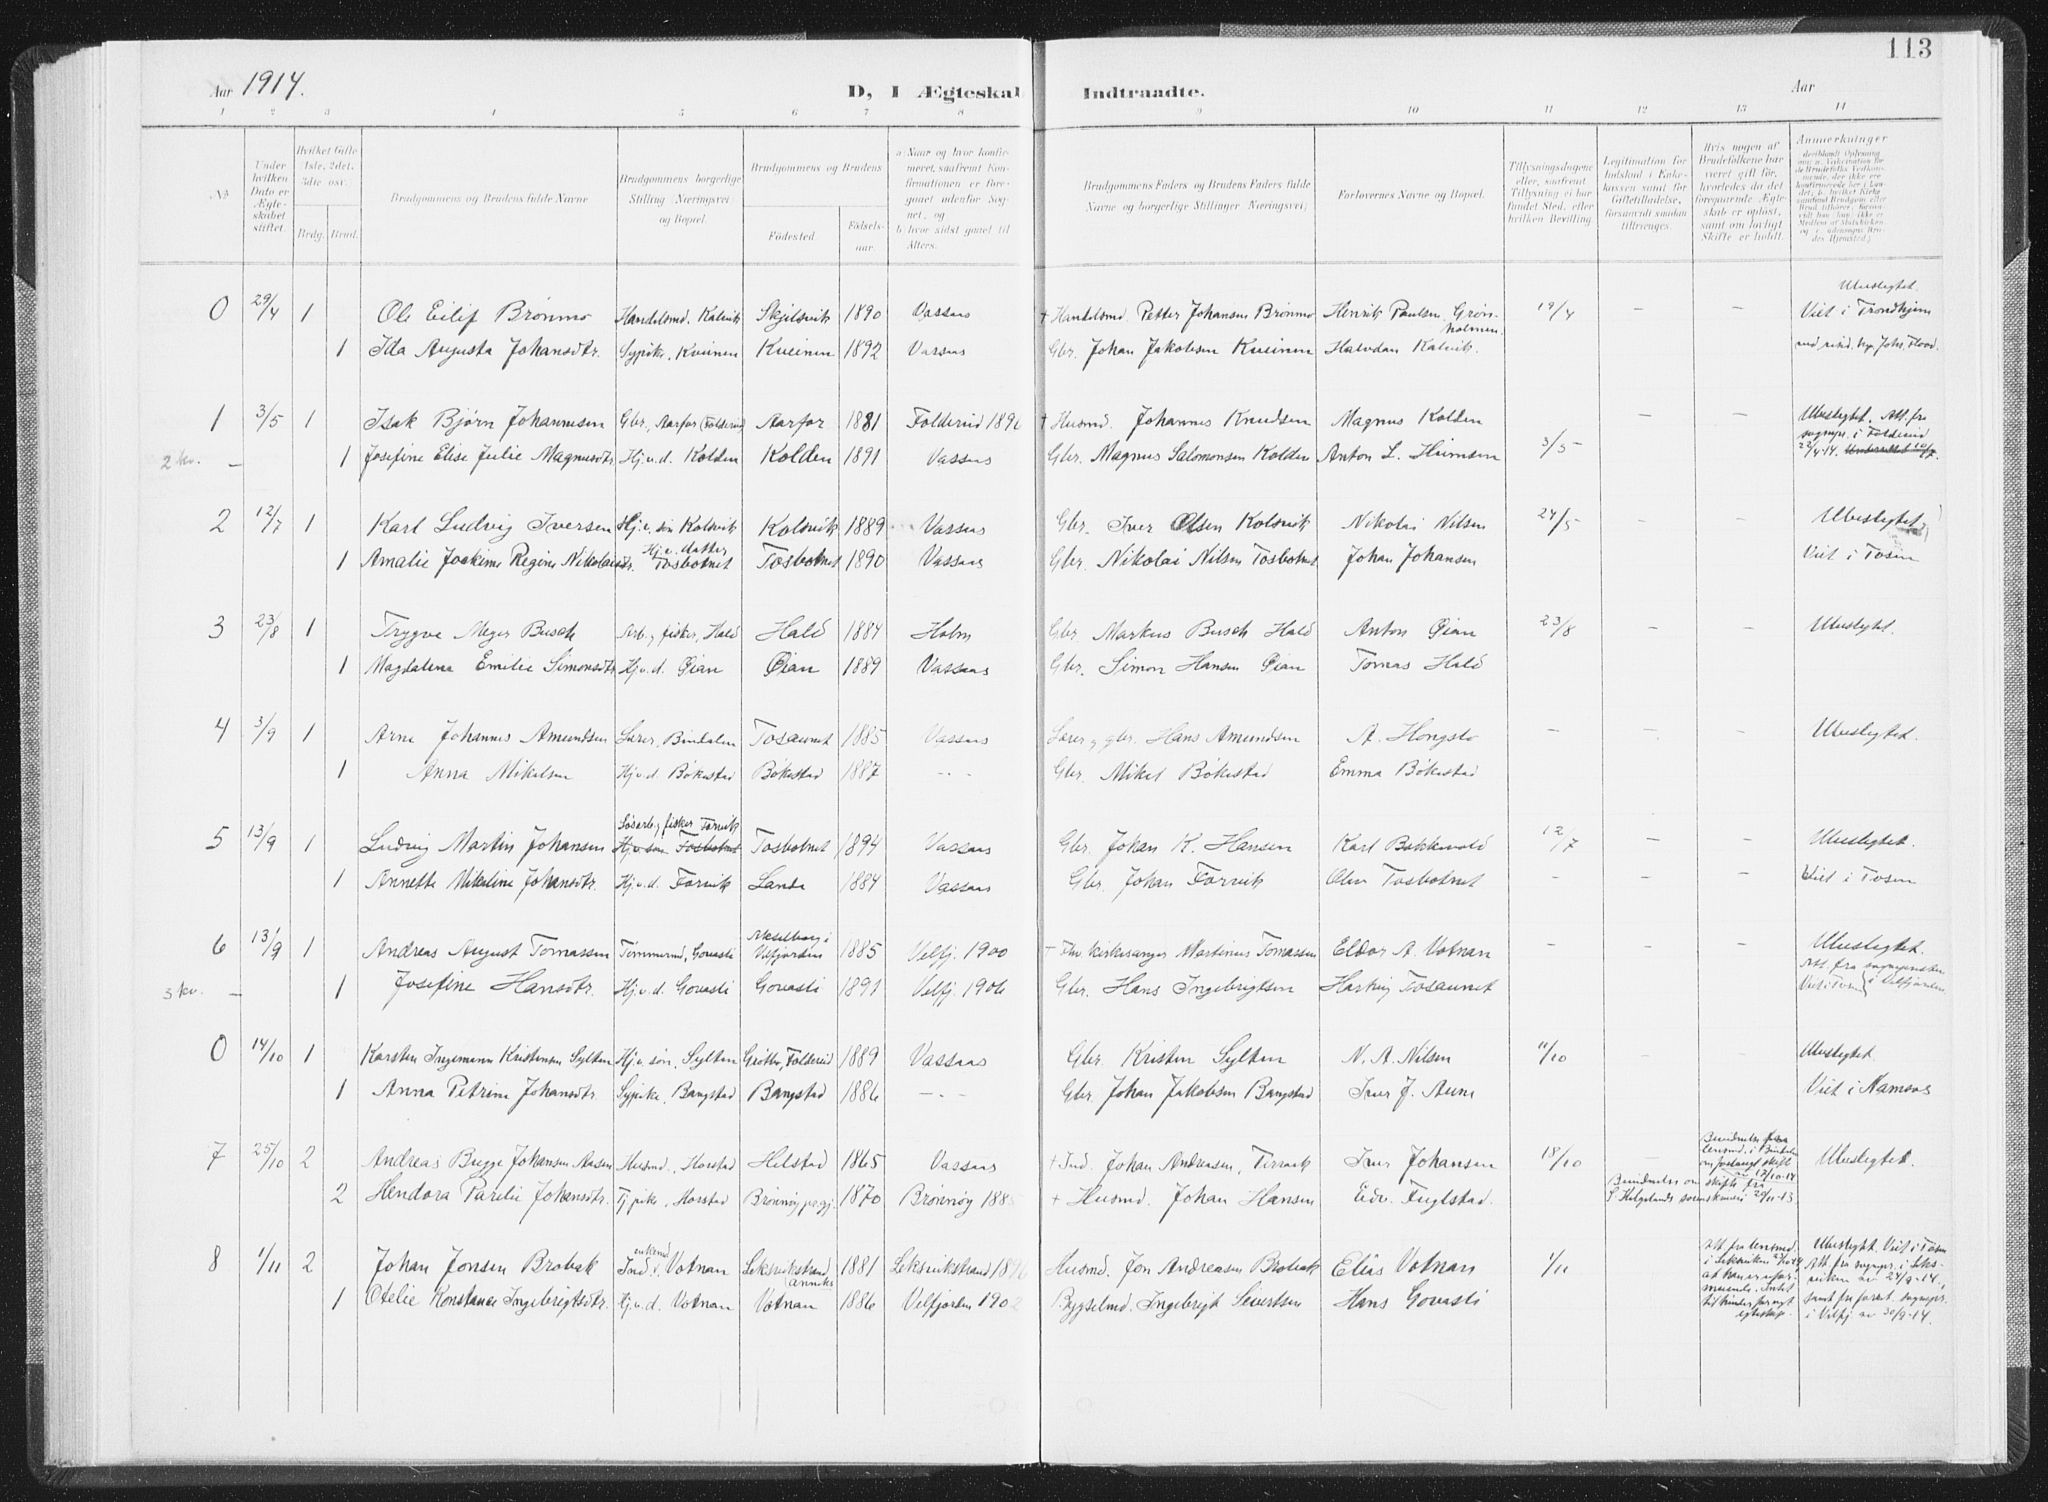 113
Aar 1914.
D, I Ægteskab Indtraadte.
Aar
1 2 3 4 5 6 7 8 9 10 11 12 13 14
No
Under hvilken Dato er Ægteskabet stiftet.
Hvilket Gifte 1ste, 2det, 3die osv.
Brdg. Brud.
Brudgommens og Brudens fulde Navne
Brudgommens borgerlige Stilling Næringsvei og Bopæl.
Brudgommens og Brudens
Fødested
Fødselsaar.
a. Naar og hvor konfirmeret, saafremt Konfirmationen er foregaaet udenfor Sognet, og
b. hvor sidst gaaet til Alters.
Brudgommens Faders og Brudens Faders fulde Navne og borgerlige Stillinger Næringsvei;
Forlovernes Navne og Bopæl.
Tillysningsdagene eller, saafremt Tillysning ei har fundet Sted, efter hvilken Bevilling.
Legitimation for Indskud i Enkekassen samt for Giftetilladelse, forsaavidt saadan tiltrænges.
Hvis nogen af Brudefolkene har været gift før, hvorledes da det foregaaende Ægteskab er opløst, samt om lovligt Skifte er holdt.
Anmerkninger
0 29/4 1 Ole Eilif Brønmo Handelsmd. Kalvik Skjelsvik 1890 Vassaas + Handelsmd Petter Johansen Brønmo Henrik Paulsen, Grønholmen. 19/4 — — Ubeslegtet. Viet i Trondhjem
1 Ida Augusta Johansdtr. Sypike, Kveinen Kveinen 1892 Vassaas Gbr. Johan Jakobsen Kveinen Halvdan Kalvik.
1 3/5 1 Isak Bjørn Johannesen Gbr., Aarfor (Foldereid) Aarfor 1881 Foldereid 1896 + Husmd. Johannes Knudsen Magnus Kolden — — Ubeslegtet. Att. fra sognepr. i Foldereid
2 kv. — 1 Josefine Elise Julie Magnusdtr Hj.v.d. Kolden Kolden 1891 Vassaas Gbr. Magnus Salomonsen Kolden Anton L. Heimsen 3/5 22/4-14.
2 12/7 1 Karl Ludvig Iversen Hj.v. søn Kolsvik Kolsvik 1889 Vassaas Gbr. Iver Olsen Kolsvik Nikolai Nilsen 24/5 — — Ubeslegtet
1 Amalie Joakime Regine Nikolaisdtr. Hj.v. datter Tosbotnet Tosbotnet 1890 Vassaas Gbr. Nikolai Nilsen Tosbotnet Johan Johansen Viet i Tosen
3 23/8 1 Trygve Meyer Busch Arb. g fisker, Hald Hald 1884 Holm Gbr. Markus Busch Hald Anton Øian 23/8 — — Ubeslegtet.
1 Magdalena Emilie Simonsdtr Hj.v.d. Øian Øian 1889 Vassaas Gbr. Simon Hansen Øian Tomas Hald
4 3/9 1 Arne Johannes Amundsen Lærer, Bindalen Tosaunet 1885 Vassaas Lærer g gbr. Hans Amundsen A. Hongslo — — — Ubeslegtet.
1 Anna Mikelsen Hj.v.d. Bøkestad Bøkestad 1887 -"- Gbr. Mikel Bøkestad Emma Bøkestad
5 13/9 1 Ludvig Martin Johansen Løsarb. g fisker Forvik Hj.v. søn Tosbotnet Tosbotnet 1894 Vassaas Gbr. Johan K. Hansen Karl Bakkevold 12/7 — — Ubeslegtet.
1 Annette Mikeline Johansdtr. Hj.v.d. Forvik Lande 1884 Vassaas Gbr. Johan Forvik Olav Tosbotnet — — — Viet i Tosen
6 13/9 1 Andreas August Tomassen Tømmermd, Govasli Akselberg i Velfjorden 1885 Velfj. 1900 + Fhv kirkesanger Martinus Tomassen Eldor A. Votnan — — — Ubeslegtet.
3 kv. — 1 Josefine Hansdtr. Hj.v.d. Govasli Govasli 1891 Velfj. 1906 Gbr. Hans Ingebrigtsen Hartvig Tosaunet Att. fra sognepresten i Velfjorden Viet i Tosen
0 14/10 1 Karsten Ingemann Kristensen Sylten Hj.v. søn, Sylten Grøtter, Foldereid 1889 Vassaas Gbr. Kristen Sylten N. A. Nilsen 11/10 — — Ubeslegtet.
1 Anna Petrine Johansdtr. Sypike, Bangstad Bangstad 1886 -"- Gbr. Johan Jakobsen Bangstad Iver J. Aune Viet i Namsos
7 25/10 2 Andreas Bugge Johansen Aasen Husmd, Horstad Helstad 1865 Vassaas + Ind. Johan Andreasen, Terraak Iver Johansen 18/10 — Ubeslegtet.
2 Hendora Parelie Johansdtr. Tj.pike, Horstad Brønnøy prgj. 1870 Brønnøy 1885 + Husmd. Johan Hansen Edv. Fuglstad. S. Helgelands sorenskriveri 20/11-13
8 1/11 2 Johan Jonsen Brobak enkemd Ind. i Votnan Leksvikstrand 1881 Leksvikstrand 1896 Husmd. Jon Andreasen Brobak Elias Votnan 1/11 Att. fra lensmd. i Leksviken Ubeslegtet. Viet i Tosen Att. fra sognepr. i Leksviken av 24/9-14,
1 Otelie Konstanse Ingebrigtsdtr. Hj.v.d. Votnan Votnan 1886 Velfjorden 1902 Bygselmd. Ingebrigt Sivertsen Hans Govasli samt fra forest. sognepr. i Velfj av 30/9-14.